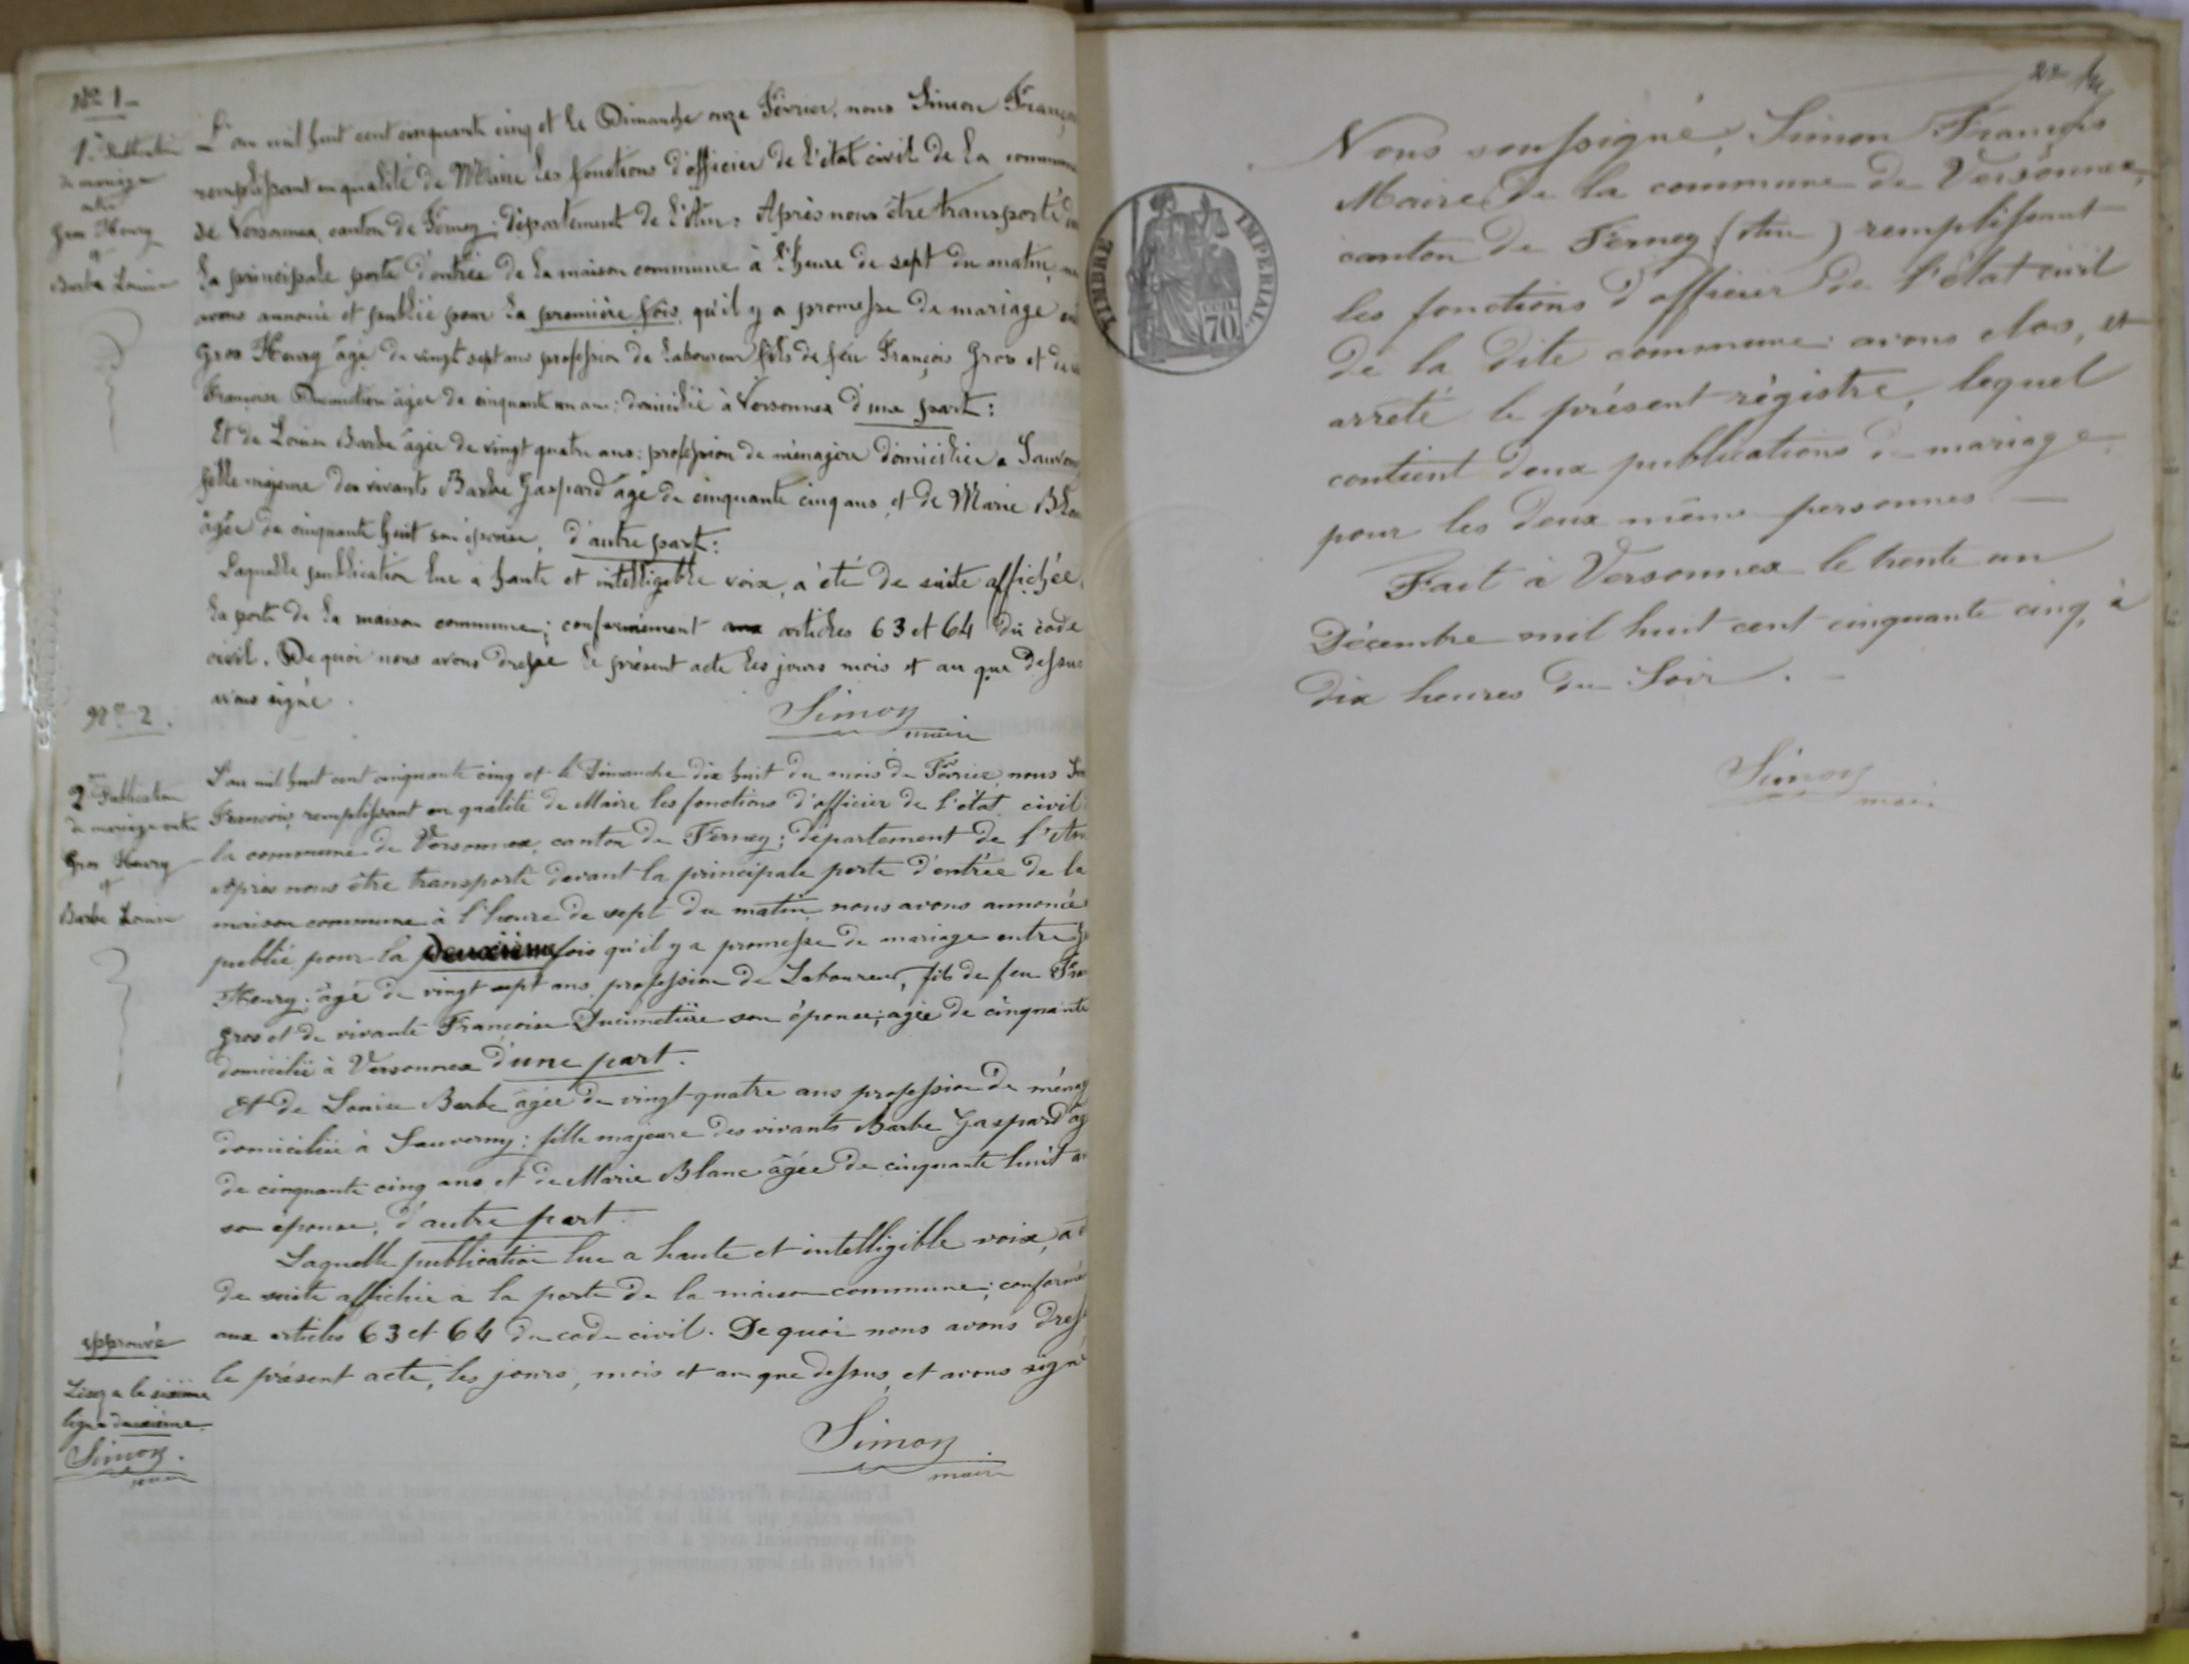 N° 1
1re Publication
de mariage
entre
Gros Henry
et
Barbe Louise
L'an mil huit cent cinquante cinq et le Dimanche onze Février, nous Simon Franç
remplissant en qualité de Maire les fonctions d'officier de l'état civil de la commune
de Versonnex, canton de Ferney; département de l'Ain. Après nous être transporté
la principale porte d'entrée de la maison commune à l'heure de sept du matin,
avons annoncé et publié pour la première fois qu'il y a promesse de mariage
Gros Henry âgé de vingt sept ans profession de laboureur fils de feu François Gros et de
Françoise Ducimetière âgée de cinquante un ans; domicilié à Versonnex d'une part:
Et de Louise Barbe âgée de vingt quatre ans: profession de ménagère domiciliée a Sauver
fille majeure des vivants Barbe Gaspard âgé de cinquante cinq ans, et de Marie Bla
âgée de cinquante huit son épouse, d'autre part:
Laquelle publication lue à haute et intelligible voix, a été de suite affichée
la porte de la maison commune; conformément aux articles 63 et 64 du code
civil. De quoi nous avons dressé le présent acte les jours mois et an que dessus
avons signé.
Simon
maire
N° 2.
2me Publication
de mariage entre
Gros Henry
et
Barbe Louise
L'an mil huit cent cinquante cinq et le Dimanche dix huit du mois de Février nous
François, remplissant en qualité de Maire les fonctions d'officier de l'état civil
la commune de Versonnex, canton de Ferney; département de l'Ain
Après nous être transporté devant la principale porte d'entrée de la
maison commune à l'heure de sept du matin nous avons annoncé
publié pour la deuxième fois qu'il y a promesse de mariage entre
Henry; âgé de vingt sept ans profession de Laboureur, fils de feu Fran
Gros et de vivante Françoise Ducimetière son épouse; âgée de cinquante
domicilié à Versonnex d'une part.
Et de Louise Barbe âgée de vingt-quatre ans profession de ménag
domiciliée à Sauverny: fille majeure des vivants Barbe Gaspard âg
de cinquante cinq ans et de Marie Blanc âgée de cinquante huit a
son epouse, d'autre part.
Laquelle publication lue a haute et intelligible voix, a
de suite affichée a la porte de la maison commune; conformé
aux articles 63 et 64 du code civil. De quoi nous avons dress
le présent acte, les jours, mois et an que dessus, et avons signé
Simon
maire
approuvé
Lisez a la sixième
ligne deuxième
Simon.
maire
Nous soussigné, Simon François
Maire de la commune de Versonnex,
canton de Ferney (Ain) remplissant
les fonctions d'officier de l'état civil
de la dite commune: avons clos, et
arrêté le présent régistre, lequel
contient deux publications de mariage
pour les deux même personnes —
Fait à Versonnex le trente un
Décembre mil huit cent cinquante cinq, à
dix heures du Soir. —
Simon
maire
TIMBRE IMPERIAL
70